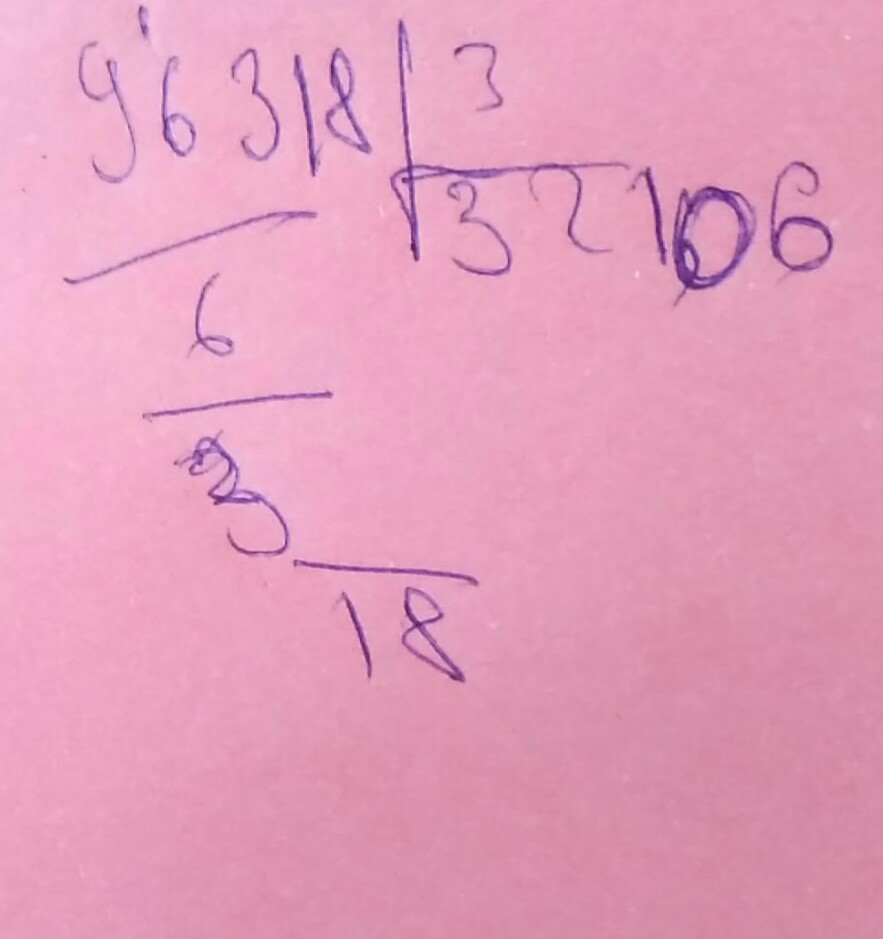 96318 3
32106
6
3
18